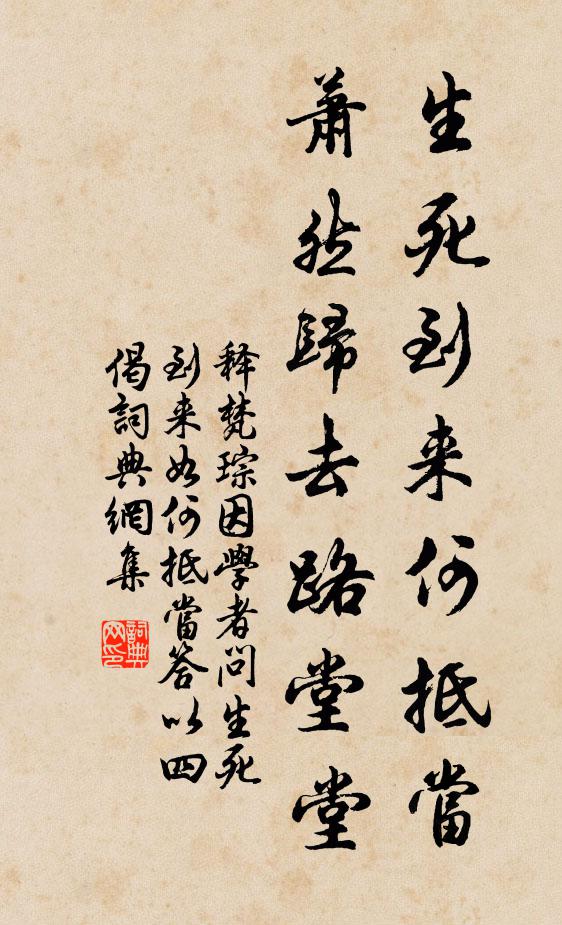 生死到来何抵當
蕭然歸去路堂堂
释梵琮因學者问生死
到来如何抵當答以四
偈詞典網集
詞典
网印